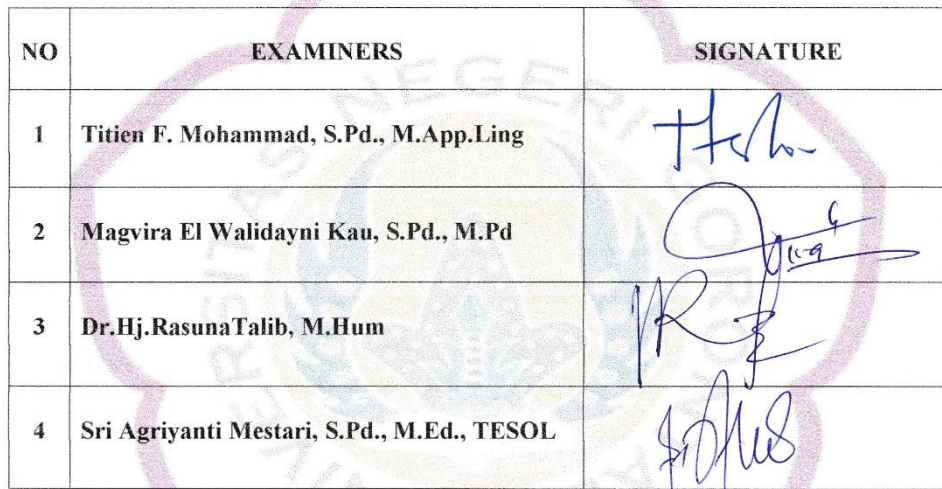 NO EXAMINERS SIGNATURE
1 Titien F. Mohammad, S.Pd., M.App.Ling
2 Magvira El Walidayni Kau, S.Pd., M.Pd
3 Dr.Hj.RasunaTalib, M.Hum
4 Sri Agriyanti Mestari, S.Pd., M.Ed., TESOL